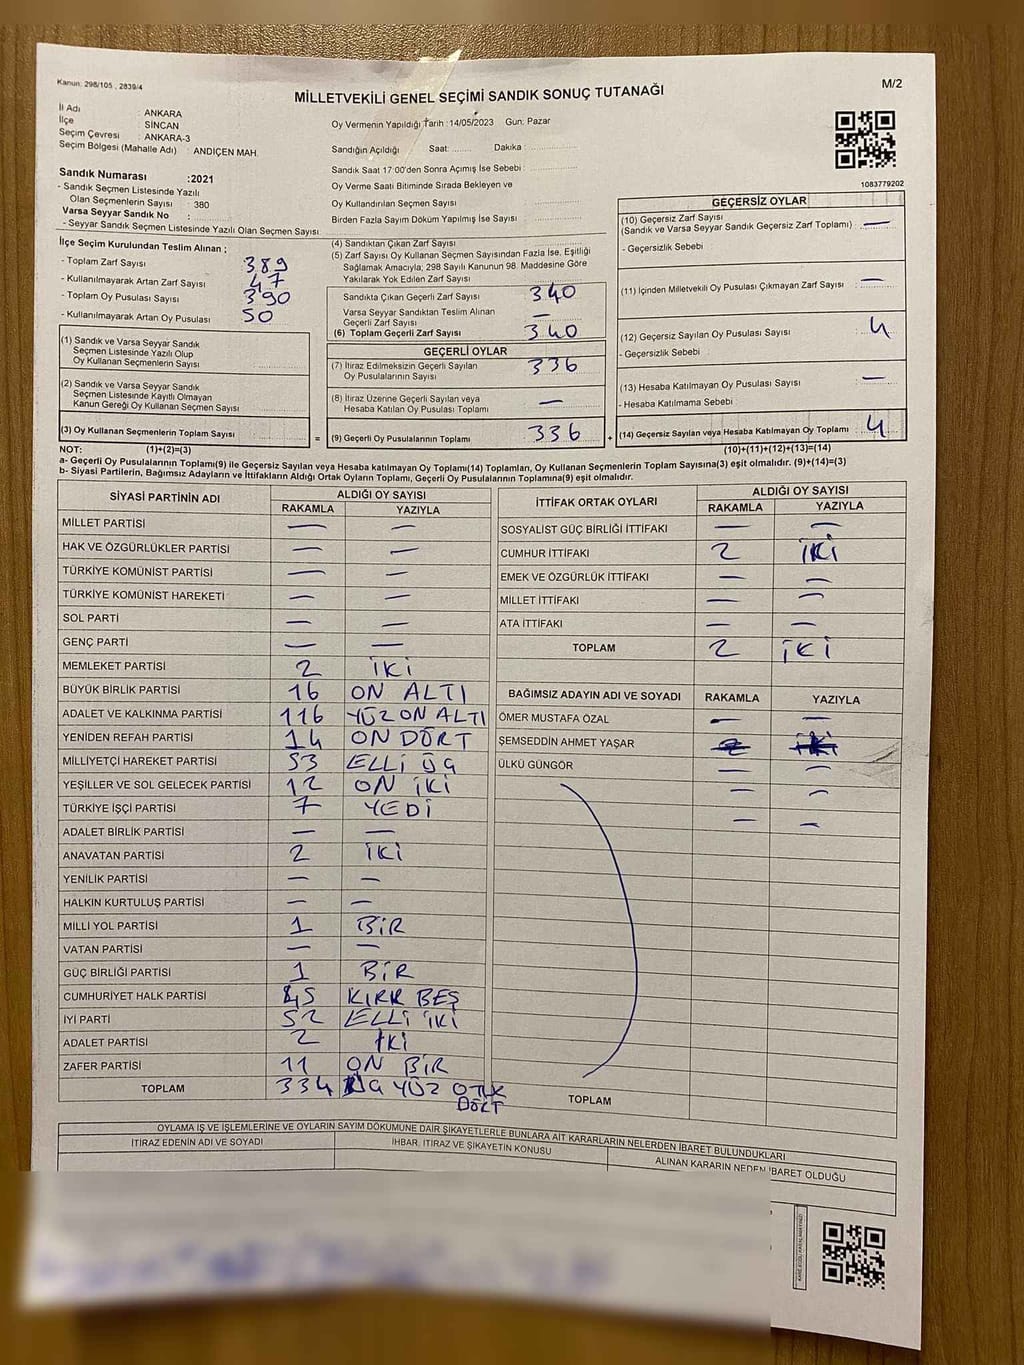 Kanun: 298/105 , 2839/4
M/2
MİLLETVEKİLİ GENEL SEÇİMİ SANDIK SONUÇ TUTANAĞI
İl Adı : ANKARA
İlçe : SİNCAN
Seçim Çevresi : ANKARA-3
Seçim Bölgesi (Mahalle Adı) : ANDIÇEN MAH.
Oy Vermenin Yapıldığı Tarih : 14/05/2023 Gün: Pazar
Sandığın Açıldığı Saat: ........ Dakika : ................
Sandık Saat 17:00'den Sonra Açımış İse Sebebi :
Oy Verme Saati Bitiminde Sırada Bekleyen ve
Oy Kullandırılan Seçmen Sayısı
Birden Fazla Sayım Döküm Yapılmış İse Sayısı
Sandık Numarası :2021
- Sandık Seçmen Listesinde Yazılı
Olan Seçmenlerin Sayısı : 380
Varsa Seyyar Sandık No :
- Seyyar Sandık Seçmen Listesinde Yazılı Olan Seçmen Sayısı
1083779202
İlçe Seçim Kurulundan Teslim Alınan ;
- Toplam Zarf Sayısı 389
- Kullanılmayarak Artan Zarf Sayısı 47
- Toplam Oy Pusulası Sayısı 390
- Kullanılmayarak Artan Oy Pusulası 50
(1) Sandık ve Varsa Seyyar Sandık
Seçmen Listesinde Yazılı Olup
Oy Kullanan Seçmenlerin Sayısı
(2) Sandık ve Varsa Seyyar Sandık
Seçmen Listesinde Kayıtlı Olmayan
Kanun Gereği Oy Kullanan Seçmen Sayısı
(3) Oy Kullanan Seçmenlerin Toplam Sayısı
(4) Sandıktan Çıkan Zarf Sayısı
(5) Zarf Sayısı Oy Kullanan Seçmen Sayısından Fazla İse, Eşitliği
Sağlamak Amacıyla; 298 Sayılı Kanunun 98. Maddesine Göre
Yakılarak Yok Edilen Zarf Sayısı
Sandıkta Çıkan Geçerli Zarf Sayısı 340
Varsa Seyyar Sandıktan Teslim Alınan
Geçerli Zarf Sayısı —
(6) Toplam Geçerli Zarf Sayısı 340
GEÇERLİ OYLAR
(7) İtiraz Edilmeksizin Geçerli Sayılan
Oy Pusulalarının Sayısı 336
(8) İtiraz Üzerine Geçerli Sayılan veya
Hesaba Katılan Oy Pusulası Toplamı —
= (9) Geçerli Oy Pusulalarının Toplamı 336 +
GEÇERSİZ OYLAR
(10) Geçersiz Zarf Sayısı
(Sandık ve Varsa Seyyar Sandık Geçersiz Zarf Toplamı) : —
- Geçersizlik Sebebi
(11) İçinden Milletvekili Oy Pusulası Çıkmayan Zarf Sayısı : —
(12) Geçersiz Sayılan Oy Pusulası Sayısı : 4
- Geçersizlik Sebebi :
(13) Hesaba Katılmayan Oy Pusulası Sayısı : —
- Hesaba Katılmama Sebebi :
(14) Geçersiz Sayılan veya Hesaba Katılmayan Oy Toplamı 4
(10)+(11)+(12)+(13)=(14)
NOT: (1)+(2)=(3)
a- Geçerli Oy Pusulalarının Toplamı(9) ile Geçersiz Sayılan veya Hesaba katılmayan Oy Toplamı(14) Toplamları, Oy Kullanan Seçmenlerin Toplam Sayısına(3) eşit olmalıdır. (9)+(14)=(3)
b- Siyasi Partilerin, Bağımsız Adayların ve İttifakların Aldığı Ortak Oyların Toplamı, Geçerli Oy Pusulalarının Toplamına(9) eşit olmalıdır.
SİYASİ PARTİNİN ADI ALDIĞI OY SAYISI
RAKAMLA YAZIYLA
MİLLET PARTİSİ — —
HAK VE ÖZGÜRLÜKLER PARTİSİ — —
TÜRKİYE KOMÜNİST PARTİSİ — —
TÜRKİYE KOMÜNİST HAREKETİ — —
SOL PARTİ — —
GENÇ PARTİ — —
MEMLEKET PARTİSİ 2 İKİ
BÜYÜK BİRLİK PARTİSİ 16 ON ALTI
ADALET VE KALKINMA PARTİSİ 116 YÜZ ON ALTI
YENİDEN REFAH PARTİSİ 14 ON DÖRT
MİLLİYETÇİ HAREKET PARTİSİ 53 ELLİ ÜÇ
YEŞİLLER VE SOL GELECEK PARTİSİ 12 ON İKİ
TÜRKİYE İŞÇİ PARTİSİ 7 YEDİ
ADALET BİRLİK PARTİSİ — —
ANAVATAN PARTİSİ 2 İKİ
YENİLİK PARTİSİ — —
HALKIN KURTULUŞ PARTİSİ — —
MİLLİ YOL PARTİSİ 1 BİR
VATAN PARTİSİ — —
GÜÇ BİRLİĞİ PARTİSİ 1 BİR
CUMHURİYET HALK PARTİSİ 45 KIRK BEŞ
İYİ PARTİ 52 ELLİ İKİ
ADALET PARTİSİ 2 İKİ
ZAFER PARTİSİ 11 ON BİR
TOPLAM 334 ÜÇ YÜZ OTUZ
DÖRT
İTTİFAK ORTAK OYLARI ALDIĞI OY SAYISI
RAKAMLA YAZIYLA
SOSYALİST GÜÇ BİRLİĞİ İTTİFAKI — —
CUMHUR İTTİFAKI 2 İKİ
EMEK VE ÖZGÜRLÜK İTTİFAKI — —
MİLLET İTTİFAKI — —
ATA İTTİFAKI — —
TOPLAM 2 İKİ
BAĞIMSIZ ADAYIN ADI VE SOYADI RAKAMLA YAZIYLA
ÖMER MUSTAFA ÖZAL — —
ŞEMSEDDİN AHMET YAŞAR 2 İKİ
ÜLKÜ GÜNGÖR — —
— —
— —
TOPLAM
OYLAMA İŞ VE İŞLEMLERİNE VE OYLARIN SAYIM DÖKÜMÜNE DAİR ŞİKAYETLERLE BUNLARA AİT KARARLARIN NELERDEN İBARET BULUNDUKLARI
İTİRAZ EDENİN ADI VE SOYADI İHBAR, İTİRAZ VE ŞİKAYETİN KONUSU ALINAN KARARIN NEDEN İBARET OLDUĞU